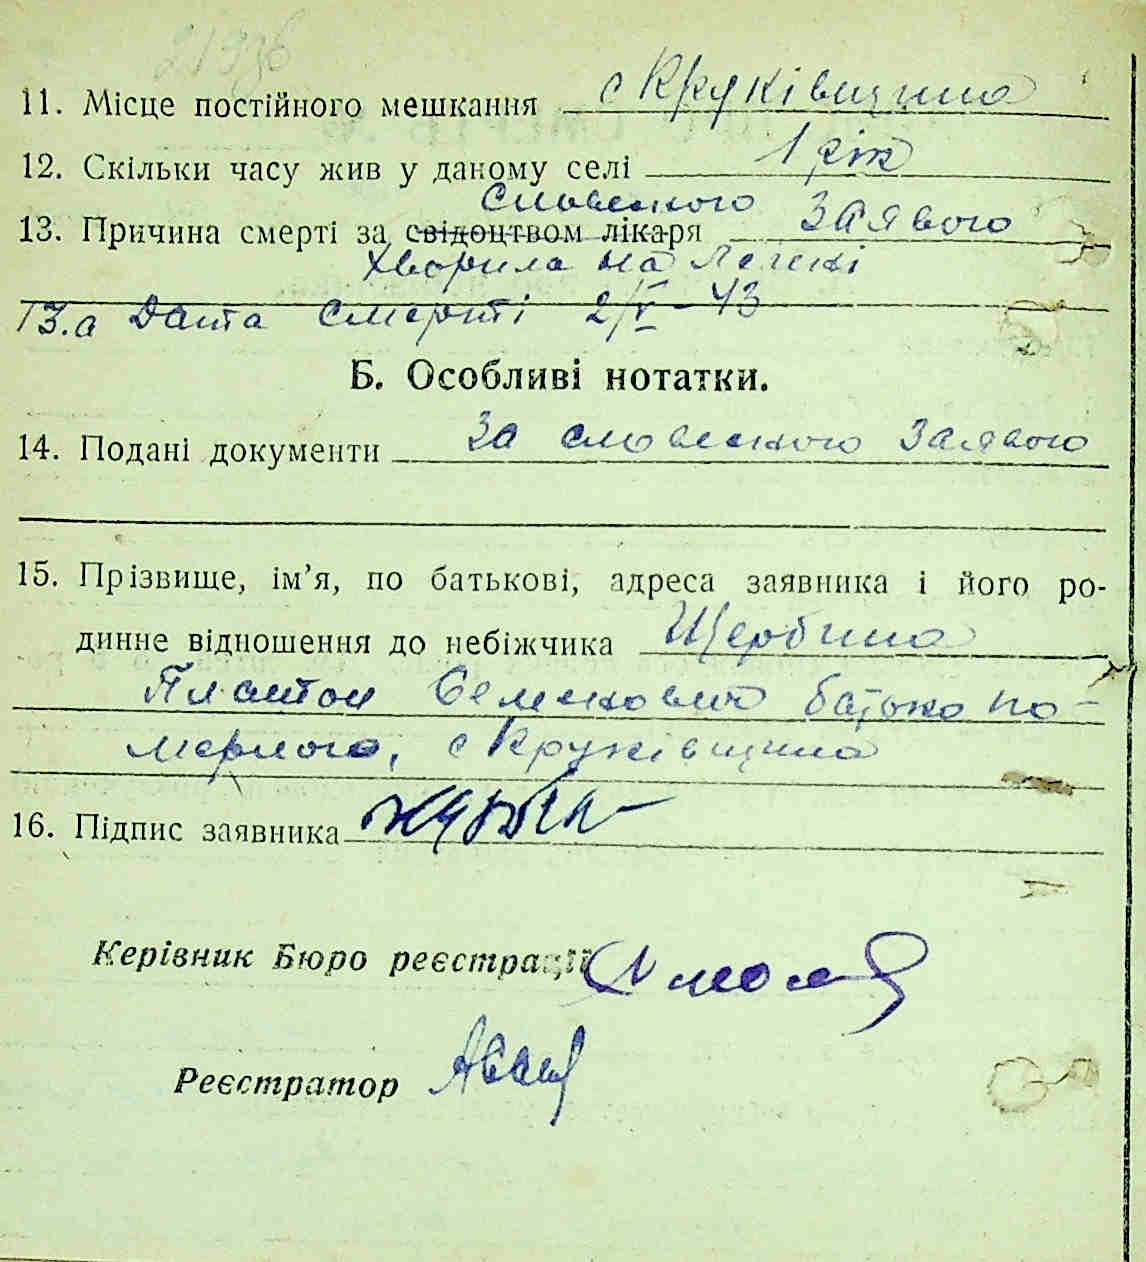 21936
11. Місце постійного мешкання с Круківщина
12. Скільки часу жив у даному селі 1 рік
словесного
13. Причина смерті за свідоцтвом лікаря заявою
хворила на легені
13.а Дата смерті 2/V-43
Б. Особливі нотатки.
14. Подані документи За словесною заявою
15. Прізвище, ім’я, по батькові, адреса заявника і його ро-
динне відношення до небіжчика Щербина
Платон Семенович батько по-
мерлого, с Круківщина
16. Підпис заявника
Керівник Бюро реєстрації
Реєстратор